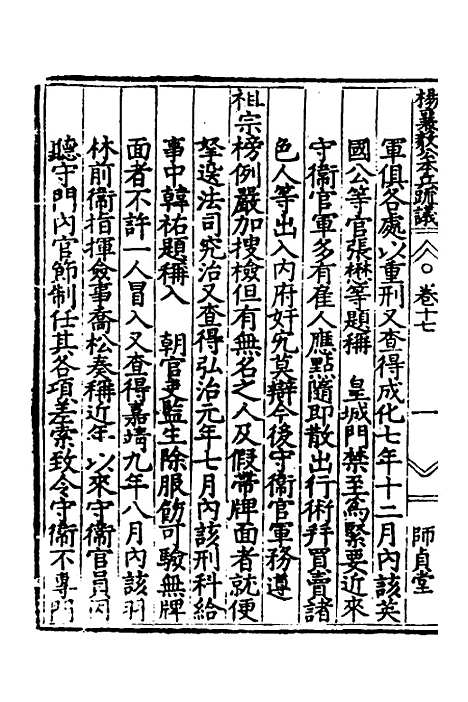 楊襄毅本兵疏議 卷十七 一 師貞堂
軍俱各處以重刑又查得成化七年十二月內該英
國公等官張懋等題稱 皇城門禁至爲緊要近來
守衛官軍多有雇人應點隨即散出行術拜買賣諸
色人等出入內府奸宄莫辯今後守衛官軍務遵
祖宗榜例嚴加搜檢但有無名之人及假帶牌面者就便
拏送法司究治又查得弘治元年七月內該刑科給
事中韓祐題稱入 朝官吏監生除服飭可驗無牌
面者不許一人冒入又查得嘉靖九年八月內該羽
林前衛指揮僉事喬松奏稱近年以來守衛官員因
聽守門內官節制任其各項差索致令守衛不專門